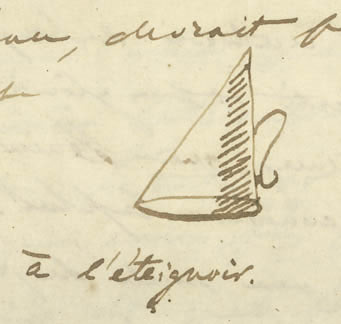 devrait
à l'éteignoir.